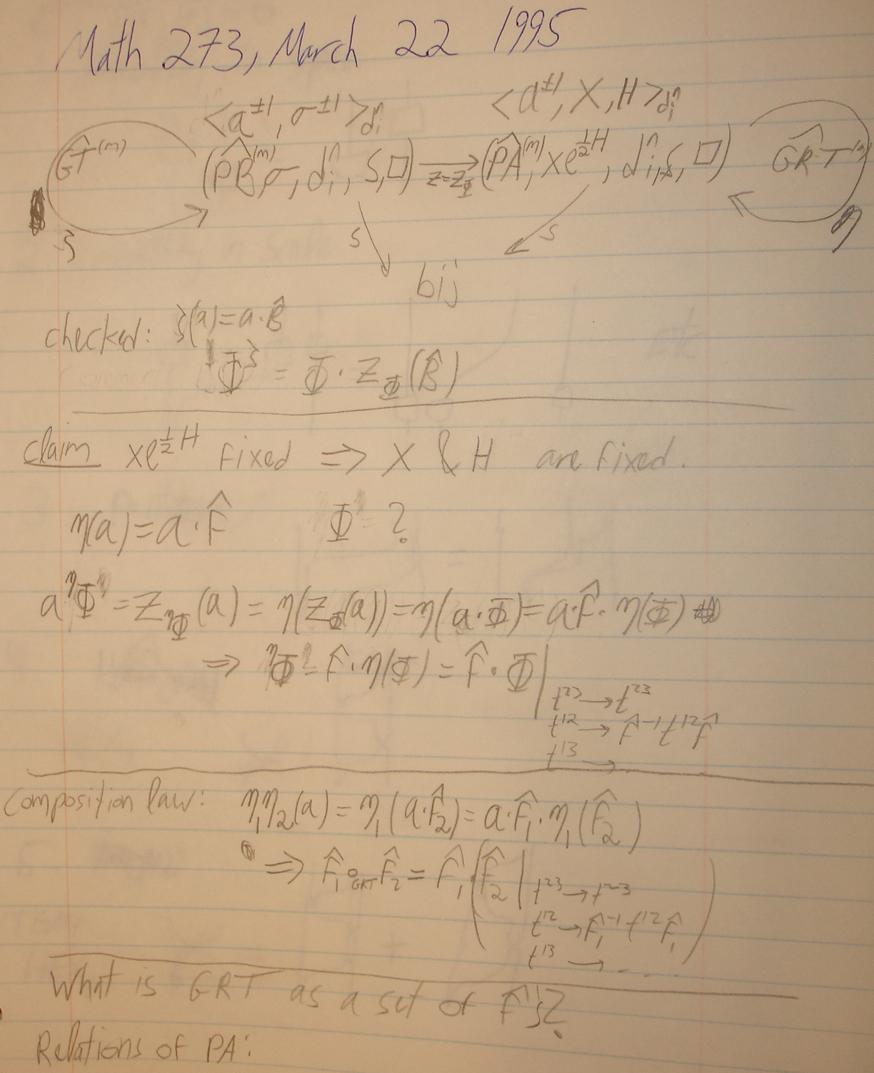 Math 273, March 22 1995
<a^{±1}, σ^{±1}>_{d_i^n} <a^{±1}, X, H>_{d_i^n}
ĜT^{(m)} (P̂B^{(m)}, σ, d_i^n, S, □) →_{Z=Z_Φ} (P̂A^{(m)}, Xe^{½H}, d_i^n, S, □) ĜRT^{(m)}
ξ S S η
bij
checked: ξ(a)=a·B̂
Φ^ξ = Φ·Z_Φ(B̂)
claim Xe^{½H} fixed ⇒ X & H are fixed.
η(a)=a·F̂ Φ^η ?
a ^ηΦ = Z_{ηΦ}(a) = η(Z_Φ(a)) = η(a·Φ) = a·F̂·η(Φ)
⇒ ^ηΦ = F̂·η(Φ) = F̂·Φ|
t^{23} → t^{23}
t^{12} → F̂^{-1}t^{12}F̂
t^{13} → ..
Composition law: η_1η_2(a) = η_1(a·F̂_2) = a·F̂_1·η_1(F̂_2)
⇒ F̂_1 ∘_{GRT} F̂_2 = F̂_1·(F̂_2|
t^{23} → t^{23}
t^{12} → F̂_1^{-1}t^{12}F̂_1
t^{13} → ....)
What is GRT as a set of F̂'s?
Relations of PA: